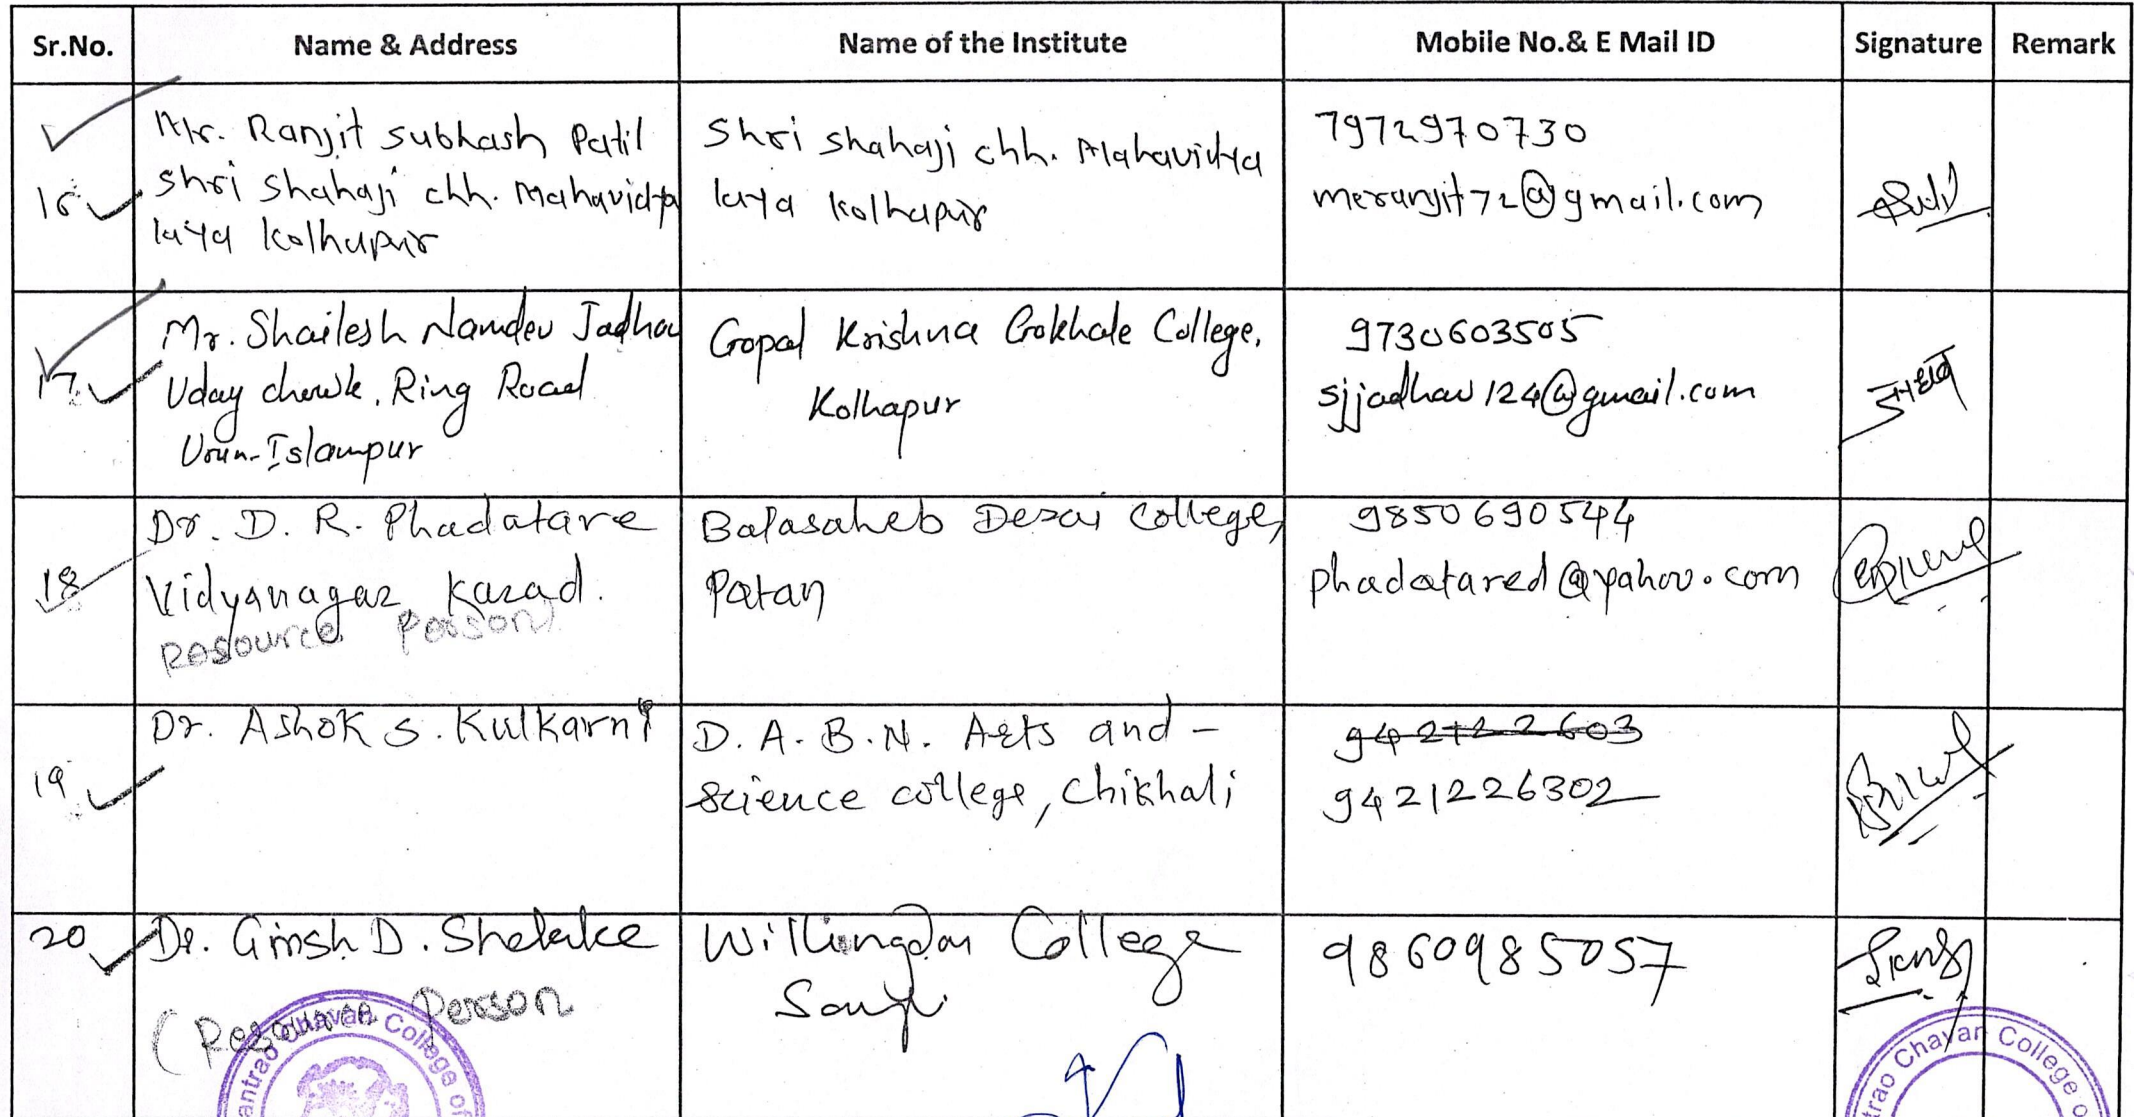 Sr.No. Name & Address Name of the Institute Mobile No.& E Mail ID Signature Remark
16
Mr. Ranjit subhash Patil
shri shahaji chh. Mahavidya
laya Kolhapur
Shri shahaji chh. Mahavidya
laya Kolhapur
7972970730
meranjit72@gmail.com
17.
Mr. Shailesh Namdev Jadhav
Uday chowk, Ring Road
Urun-Islampur
Gopal Krishna Gokhale College,
Kolhapur
9730603505
sjjadhav124@gmail.com
18
Dr. D. R. Phadatare
Vidyanagar, Karad.
Resource Person
Balasaheb Desai College,
Patan
9850690544
phadatared@yahoo.com
19
Dr. Ashok S. Kulkarni
D. A. B. N. Arts and -
science college, Chikhali
9421226302
20
Dr. Girish D. Shelake
(Resource Person
Willingdon College
Sangli
9860985057
antrao Chavan College of
trao Chavan College o